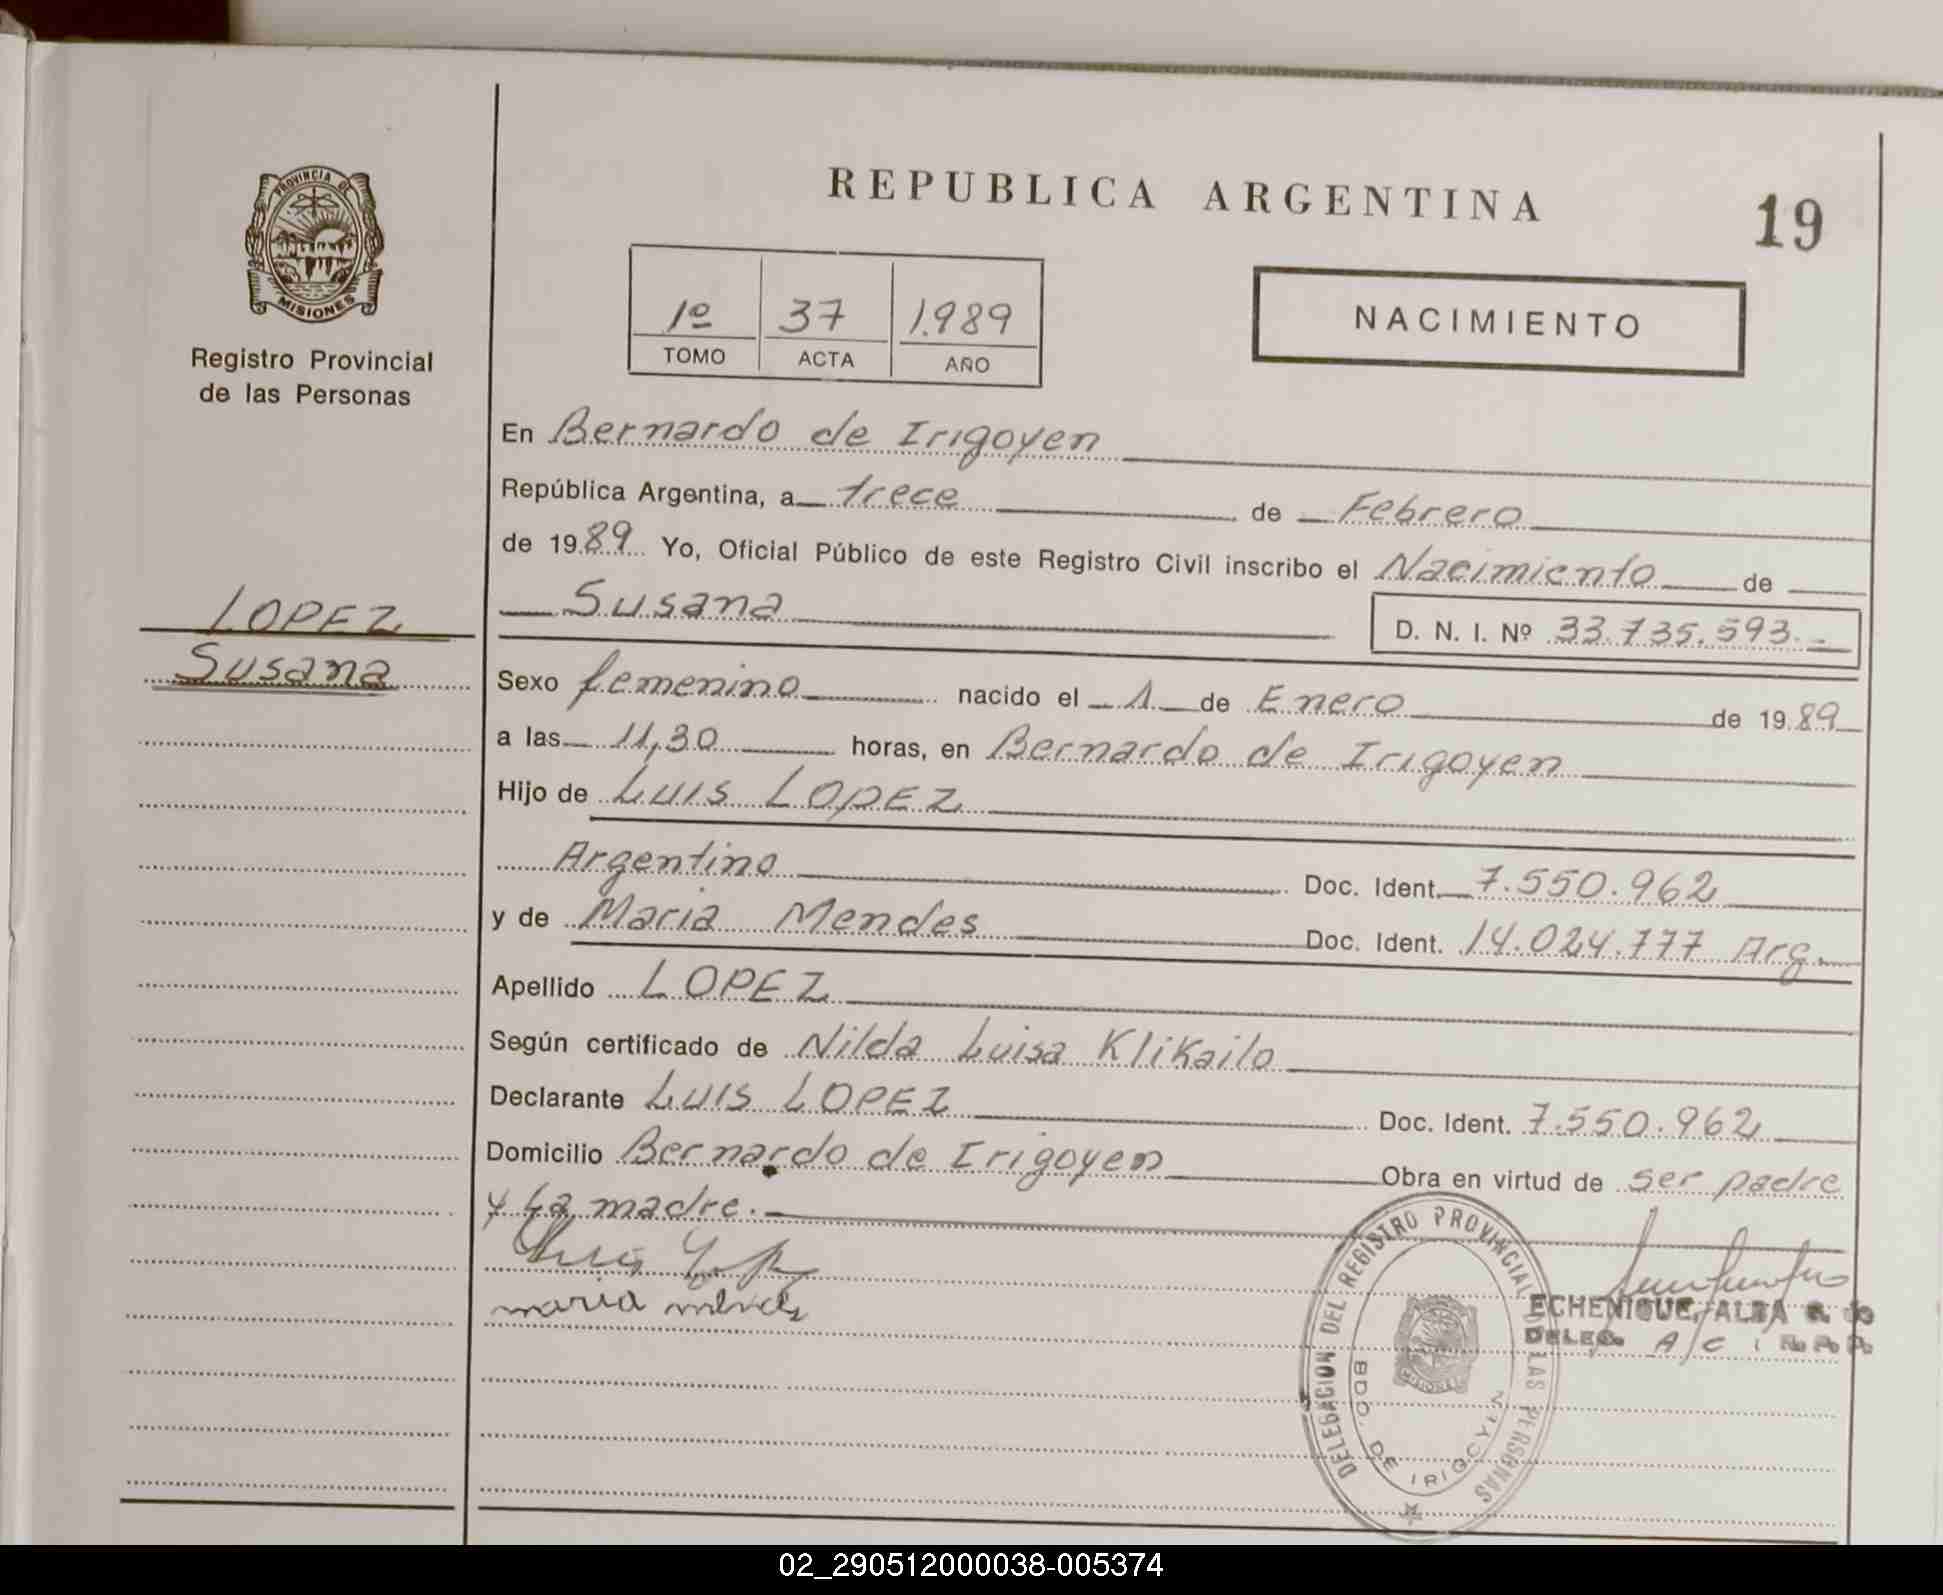 REPUBLICA ARGENTINA
19
PROVINCIA DE
MISIONES
Registro Provincial
de las Personas
1º 37 1.989
TOMO ACTA AÑO
NACIMIENTO
LOPEZ
Susana
En Bernardo de Irigoyen
República Argentina, a trece de Febrero
de 1989 Yo, Oficial Público de este Registro Civil inscribo el Nacimiento de
Susana D. N. I. Nº 33.735.593.-
Sexo femenino nacido el 1 de Enero de 1989
a las 11,30 horas, en Bernardo de Irigoyen
Hijo de Luis LOPEZ
Argentino Doc. Ident. 7.550.962
y de Maria Mendes Doc. Ident. 14.024.777 Arg.
Apellido LOPEZ
Según certificado de Nilda Luisa Klikailo
Declarante Luis LOPEZ Doc. Ident. 7.550.962
Domicilio Bernardo de Irigoyen Obra en virtud de ser padre
y La madre.
maria
DELEGACION DEL REGISTRO PROVINCIAL DE LAS PERSONAS
MISIONES
BDO. DE IRIGOYEN
ECHENIQUE, ALBA
DELEG. A/C
02_290512000038-005374